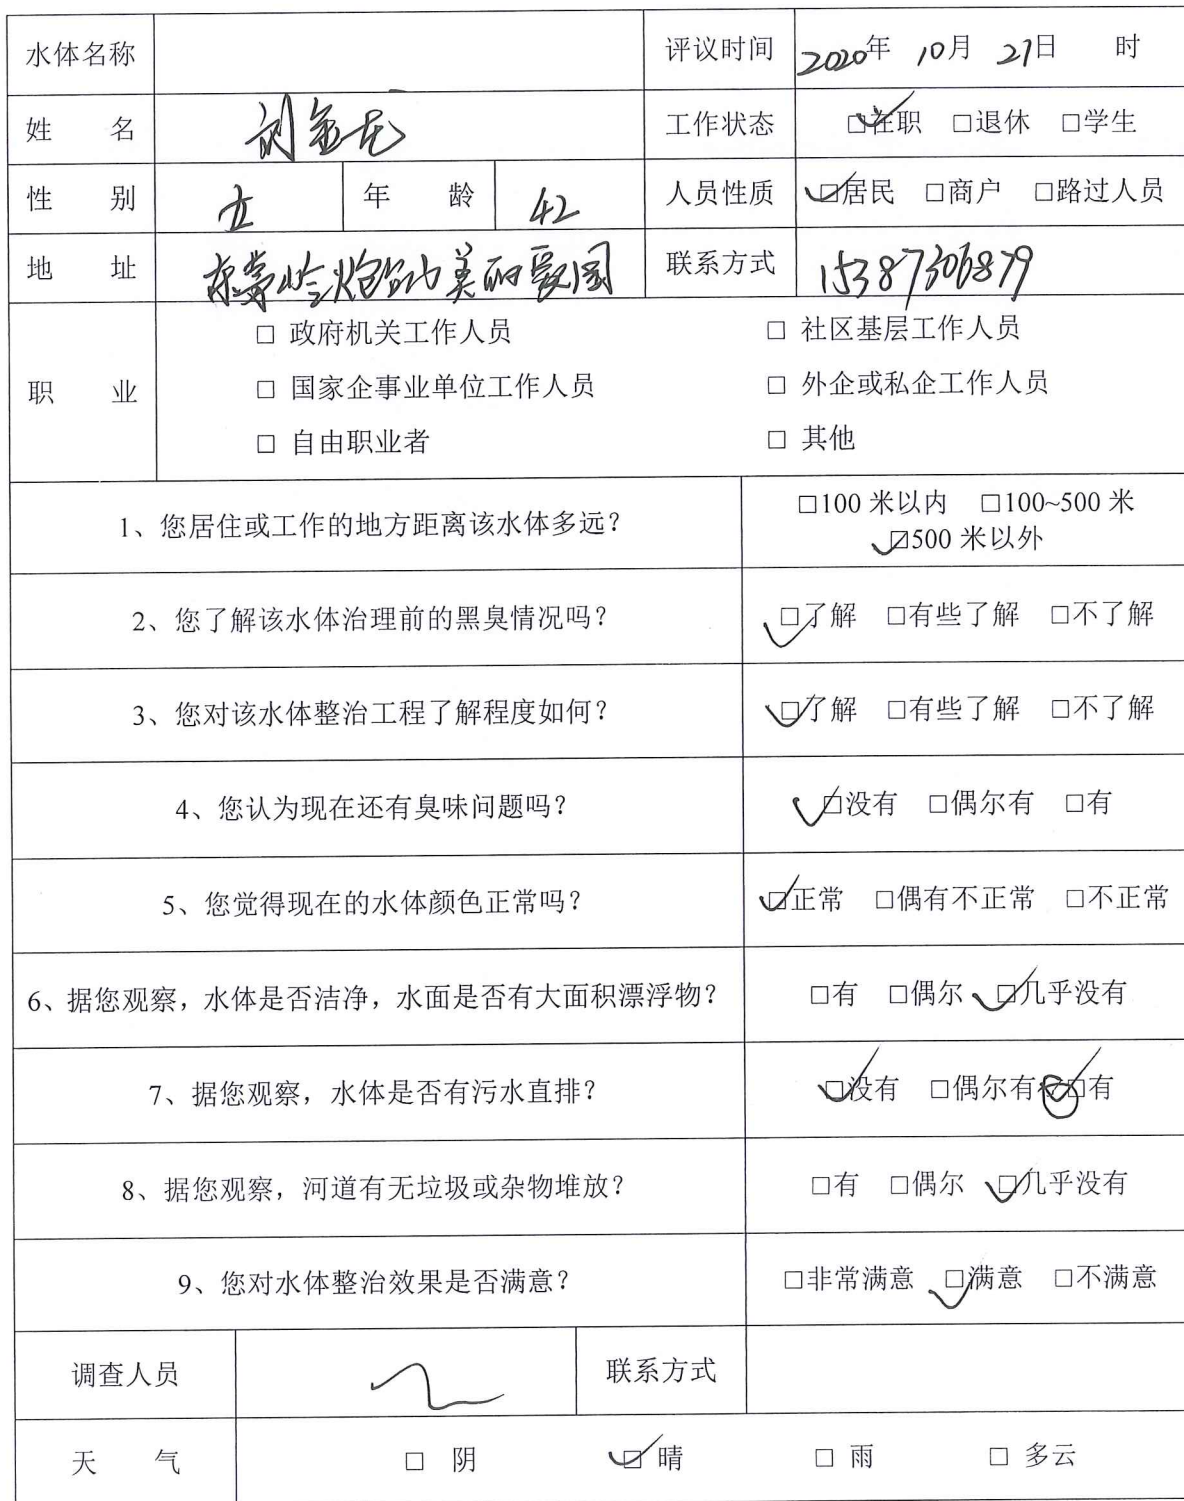 水体名称 评议时间 2020年 10月 21日 时
姓 名 工作状态 ☑在职 □退休 □学生
性 别 年 龄 42 人员性质 ☑居民 □商户 □路过人员
地 址 美丽爱园 联系方式 15387306879
职 业
□ 政府机关工作人员 □ 社区基层工作人员
□ 国家企事业单位工作人员 □ 外企或私企工作人员
□ 自由职业者 □ 其他
1、您居住或工作的地方距离该水体多远? □100 米以内 □100~500 米
☑500 米以外
2、您了解该水体治理前的黑臭情况吗? ☑了解 □有些了解 □不了解
3、您对该水体整治工程了解程度如何? ☑了解 □有些了解 □不了解
4、您认为现在还有臭味问题吗? ☑没有 □偶尔有 □有
5、您觉得现在的水体颜色正常吗? ☑正常 □偶有不正常 □不正常
6、据您观察，水体是否洁净，水面是否有大面积漂浮物? □有 □偶尔 ☑几乎没有
7、据您观察，水体是否有污水直排? ☑没有 □偶尔有 □有
8、据您观察，河道有无垃圾或杂物堆放? □有 □偶尔 ☑几乎没有
9、您对水体整治效果是否满意? □非常满意 ☑满意 □不满意
调查人员 联系方式
天 气 □ 阴 ☑ 晴 □ 雨 □ 多云